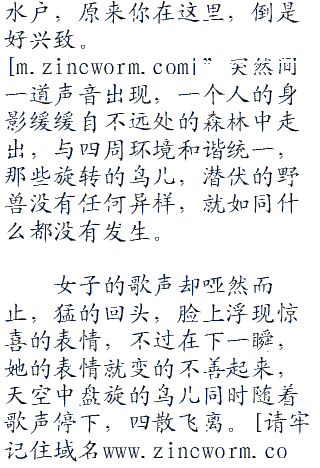 水户，原来你在这里，倒是
好兴致。
[m.zincworm.com]”突然间
一道声音出现，一个人的身
影缓缓自不远处的森林中走
出，与四周环境和谐统一，
那些旋转的鸟儿，潜伏的野
兽没有任何异样，就如同什
么都没有发生。
女子的歌声却哑然而
止，猛的回头，脸上浮现惊
喜的表情，不过在下一瞬，
她的表情就变的不善起来，
天空中盘旋的鸟儿同时随着
歌声停下，四散飞离。[请牢
记住域名www.zincworm.co